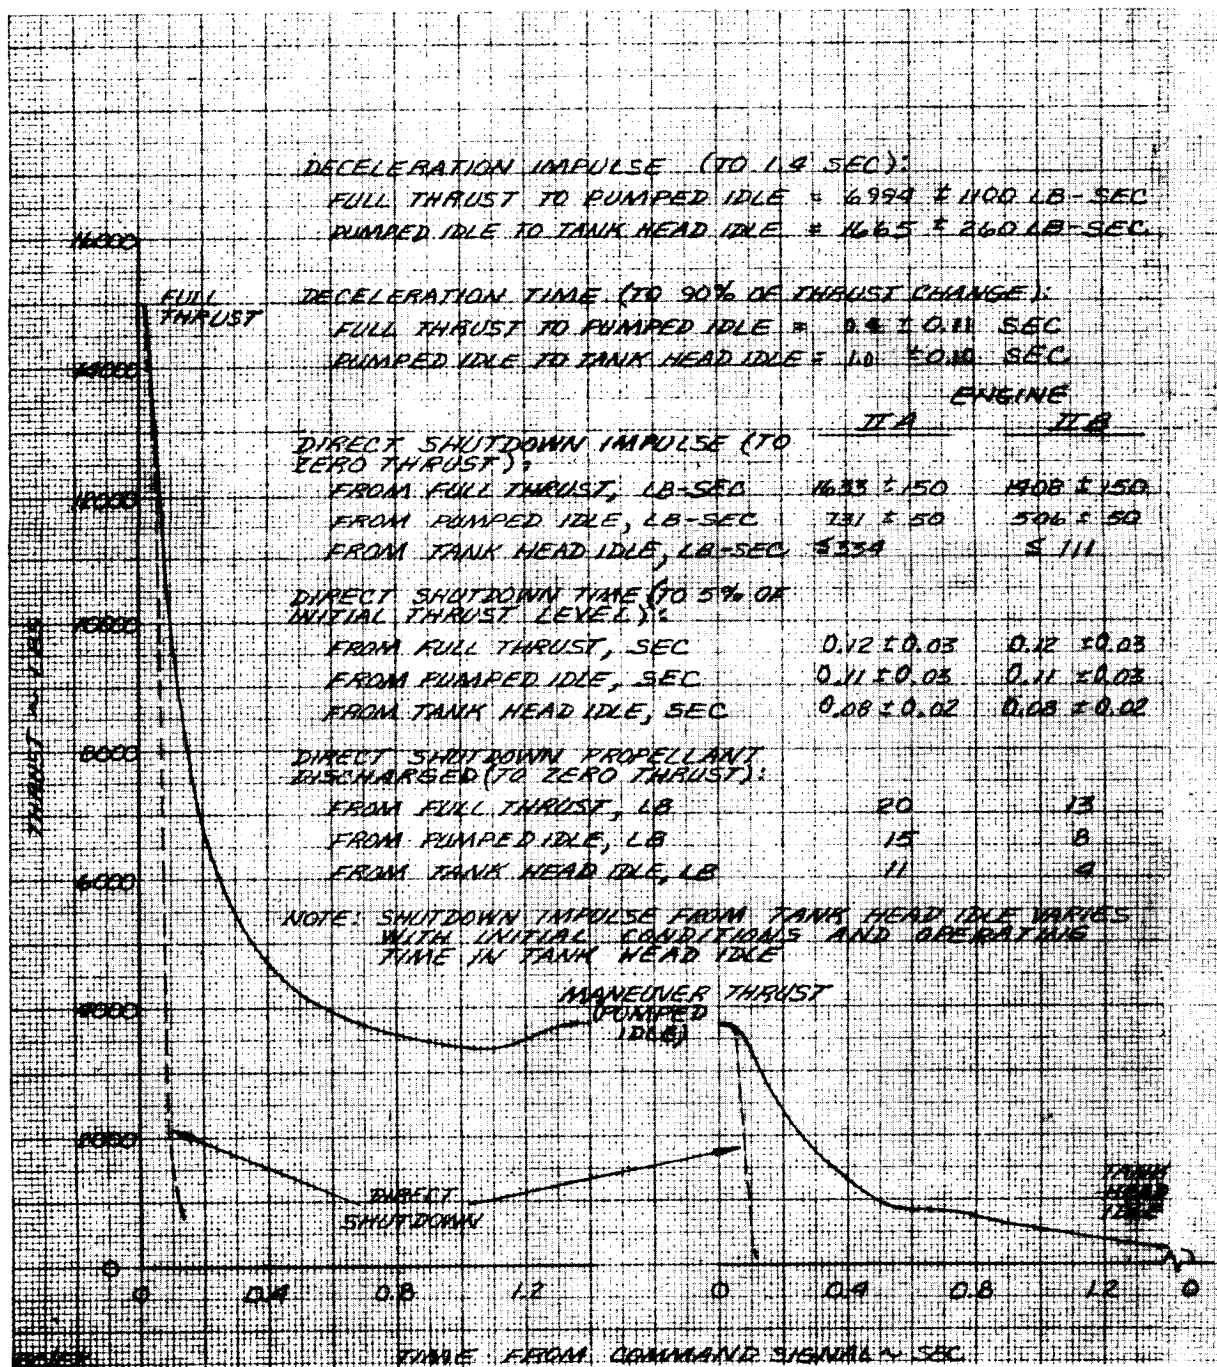 DECELERATION IMPULSE (TO 1.4 SEC):
FULL THRUST TO PUMPED IDLE = 6994 ± 1100 LB-SEC
PUMPED IDLE TO TANK HEAD IDLE = 1665 ± 260 LB-SEC
16000
FULL
THRUST
DECELERATION TIME (TO 90% OF THRUST CHANGE):
FULL THRUST TO PUMPED IDLE = 0.4 ± 0.11 SEC
PUMPED IDLE TO TANK HEAD IDLE = 1.0 ± 0.10 SEC
14000
ENGINE
IIA IIB
DIRECT SHUTDOWN IMPULSE (TO
ZERO THRUST):
FROM FULL THRUST, LB-SEC 1633 ± 150 1408 ± 150
12000
FROM PUMPED IDLE, LB-SEC 731 ± 50 506 ± 50
FROM TANK HEAD IDLE, LB-SEC ≤334 ≤ 111
DIRECT SHUTDOWN TIME (TO 5% OF
INITIAL THRUST LEVEL):
10000
FROM FULL THRUST, SEC 0.12 ± 0.03 0.12 ± 0.03
FROM PUMPED IDLE, SEC 0.11 ± 0.03 0.11 ± 0.03
FROM TANK HEAD IDLE, SEC 0.08 ± 0.02 0.08 ± 0.02
THRUST ~ LBS
8000
DIRECT SHUTDOWN PROPELLANT
DISCHARGED (TO ZERO THRUST):
FROM FULL THRUST, LB 20 13
FROM PUMPED IDLE, LB 15 8
FROM TANK HEAD IDLE, LB 11 4
6000
NOTE: SHUTDOWN IMPULSE FROM TANK HEAD IDLE VARIES
WITH INITIAL CONDITIONS AND OPERATING
TIME IN TANK HEAD IDLE
4000
MANEUVER THRUST
(PUMPED
IDLE)
2000
DIRECT
SHUTDOWN
TANK
HEAD
IDLE
0
0 0.4 0.8 1.2 0 0.4 0.8 1.2 0
TIME FROM COMMAND SIGNAL ~ SEC